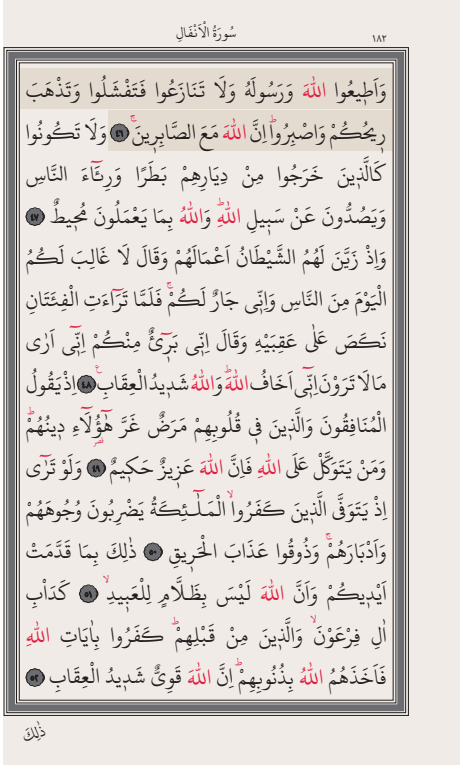 سُورَةُ الْاَنْفَالِ
١٨٢
وَاَط۪يعُوا اللّٰهَ وَرَسُولَهُ وَلَا تَنَازَعُوا فَتَفْشَلُوا وَتَذْهَبَ
ر۪يحُكُمْ وَاصْبِرُواۜ اِنَّ اللّٰهَ مَعَ الصَّابِر۪ينَۚ ﴿٤٦﴾ وَلَا تَكُونُوا
كَالَّذ۪ينَ خَرَجُوا مِنْ دِيَارِهِمْ بَطَرًا وَرِئَٓاءَ النَّاسِ
وَيَصُدُّونَ عَنْ سَب۪يلِ اللّٰهِۜ وَاللّٰهُ بِمَا يَعْمَلُونَ مُح۪يطٌ ﴿٤٧﴾
وَاِذْ زَيَّنَ لَهُمُ الشَّيْطَانُ اَعْمَالَهُمْ وَقَالَ لَا غَالِبَ لَكُمُ
الْيَوْمَ مِنَ النَّاسِ وَاِنّ۪ي جَارٌ لَكُمْۚ فَلَمَّا تَرَٓاءَتِ الْفِئَتَانِ
نَكَصَ عَلٰى عَقِبَيْهِ وَقَالَ اِنّ۪ي بَر۪ٓيءٌ مِنْكُمْ اِنّ۪ٓي اَرٰى
مَا لَا تَرَوْنَ اِنّ۪ٓي اَخَافُ اللّٰهَۜ وَاللّٰهُ شَد۪يدُ الْعِقَابِ۟ ﴿٤٨﴾ اِذْ يَقُولُ
الْمُنَافِقُونَ وَالَّذ۪ينَ ف۪ي قُلُوبِهِمْ مَرَضٌ غَرَّ هٰٓؤُ۬لَٓاءِ د۪ينُهُمْۜ
وَمَنْ يَتَوَكَّلْ عَلَى اللّٰهِ فَاِنَّ اللّٰهَ عَز۪يزٌ حَك۪يمٌ ﴿٤٩﴾ وَلَوْ تَرٰٓى
اِذْ يَتَوَفَّى الَّذ۪ينَ كَفَرُواۙ الْمَلٰٓئِكَةُ يَضْرِبُونَ وُجُوهَهُمْ
وَاَدْبَارَهُمْۚ وَذُوقُوا عَذَابَ الْحَر۪يقِ ﴿٥٠﴾ ذٰلِكَ بِمَا قَدَّمَتْ
اَيْد۪يكُمْ وَاَنَّ اللّٰهَ لَيْسَ بِظَلَّامٍ لِلْعَب۪يدِۙ ﴿٥١﴾ كَدَاْبِ
اٰلِ فِرْعَوْنَۙ وَالَّذ۪ينَ مِنْ قَبْلِهِمْۜ كَفَرُوا بِاٰيَاتِ اللّٰهِ
فَاَخَذَهُمُ اللّٰهُ بِذُنُوبِهِمْۜ اِنَّ اللّٰهَ قَوِيٌّ شَد۪يدُ الْعِقَابِ ﴿٥٢﴾
ذٰلِكَ